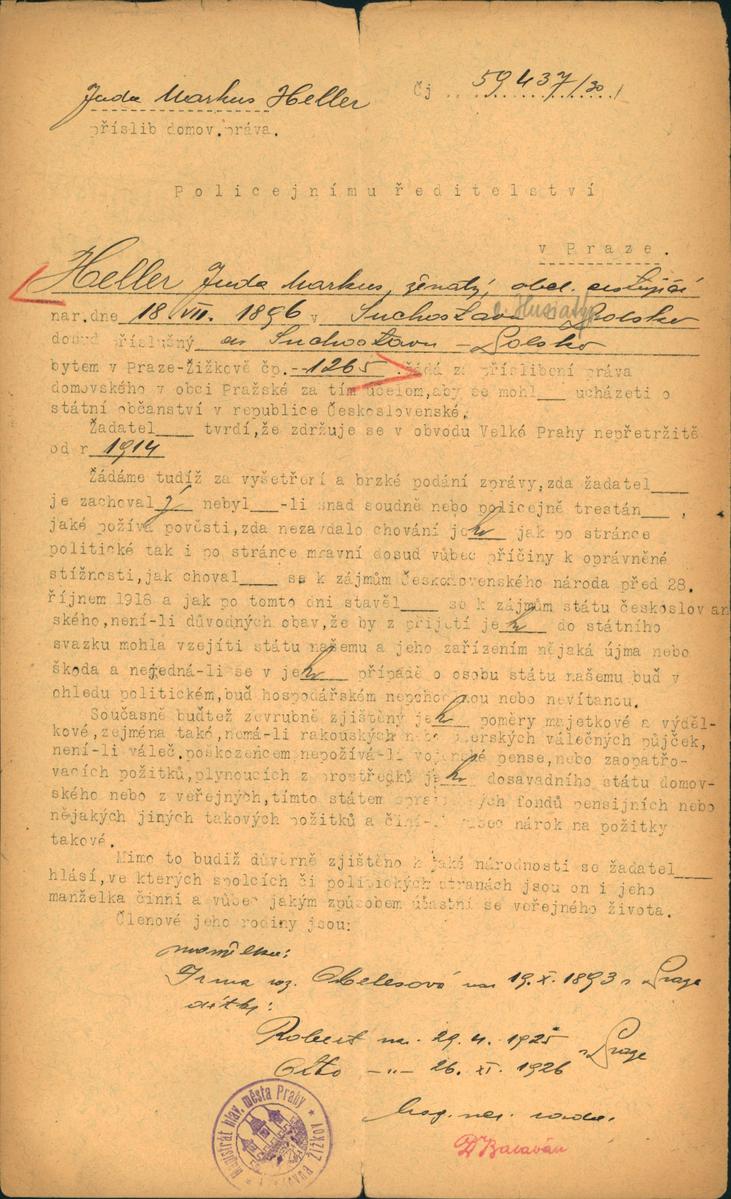 Juda Markus Heller
Čj 59437/30
příslib domov.práva.
Policejnímu ředitelství
v Praze.
Heller Juda Markus, ženatý, obch. cestující
nar.dne 18 VII. 1896 v Suchostav o. Husiatyn Polsko
dosud příslušný do Suchostavu - Polsko
bytem v Praze-Žižkově čp. 1265 .žádá za příslibení práva
domovského v obci Pražské za tím účelem,aby se mohl___ ucházeti o
státní občanství v republice Československé.
Žadatel____ tvrdí,že zdržuje se v obvodu Velké Prahy nepřetržitě
od r 1914
Žádáme tudíž za vyšetření a brzké podání zprávy,zda žadatel___
je zachoval ý nebyl___-li snad soudně nebo policejně trestán___ ,
jaké požívá pověsti,zda nezavdalo chování jeho jak po stránce
politické tak i po stránce mravní dosud vůbec příčiny k oprávněné
stížnosti,jak choval____ se k zájmům Československého národa před 28.
říjnem 1918 a jak po tomto dni stavěl____ se k zájmům státu českoslovan
ského,není-li důvodných obav,že by z přijetí jeho do státního
svazku mohla vzejíti státu našemu a jeho zařízením nějaká újma nebo
škoda a nejedná-li se v jeho případě o osobu státu našemu buď v
ohledu politickém,buď hospodářském nepohodlnou nebo nevítanou.
Současně buďtež zevrubně zjištěny jeho poměry majetkové a výděl-
kové,zejména také,nemá-li rakouských nebo uherských válečných půjček,
není-li váleč.poškozencem nepožívá-li vojenské pense,nebo zaopatřo-
vacích požitků,plynoucích z prostředků jeho dosavadního státu domov-
ského nebo z veřejných,tímto státem spravovaných fondů pensijních nebo
nějakých jiných takových požitků a činí-li vůbec nárok na požitky
takové.
Mimo to budiž důvěrně zjištěno k jaké národnosti se žadatel____
hlásí,ve kterých spolcích či politických stranách jsou on i jeho
manželka činni a vůbec jakým způsobem účastní se veřejného života.
Členové jeho rodiny jsou:
manželka:
Irma roz. Melesová nar 19.X.1893 v Praze
dítky:
Robert nar. 29.4.1925 v Praze
Otto -"- 26. XI. 1926
Mag. rada.
Magistrát hlav. města Prahy